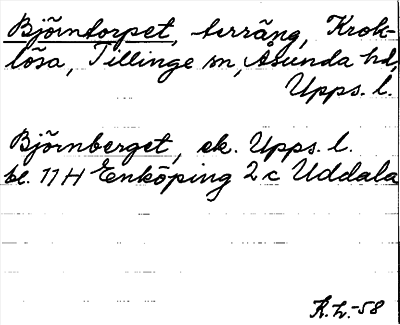 Björntorpet, terräng, Krok-
lösa, Tillinge sn, Åsunda hd,
Upps. l.
Björnberget, ek. Upps. l.
bl. 11H Enköping 2c Uddala
K.L.-58